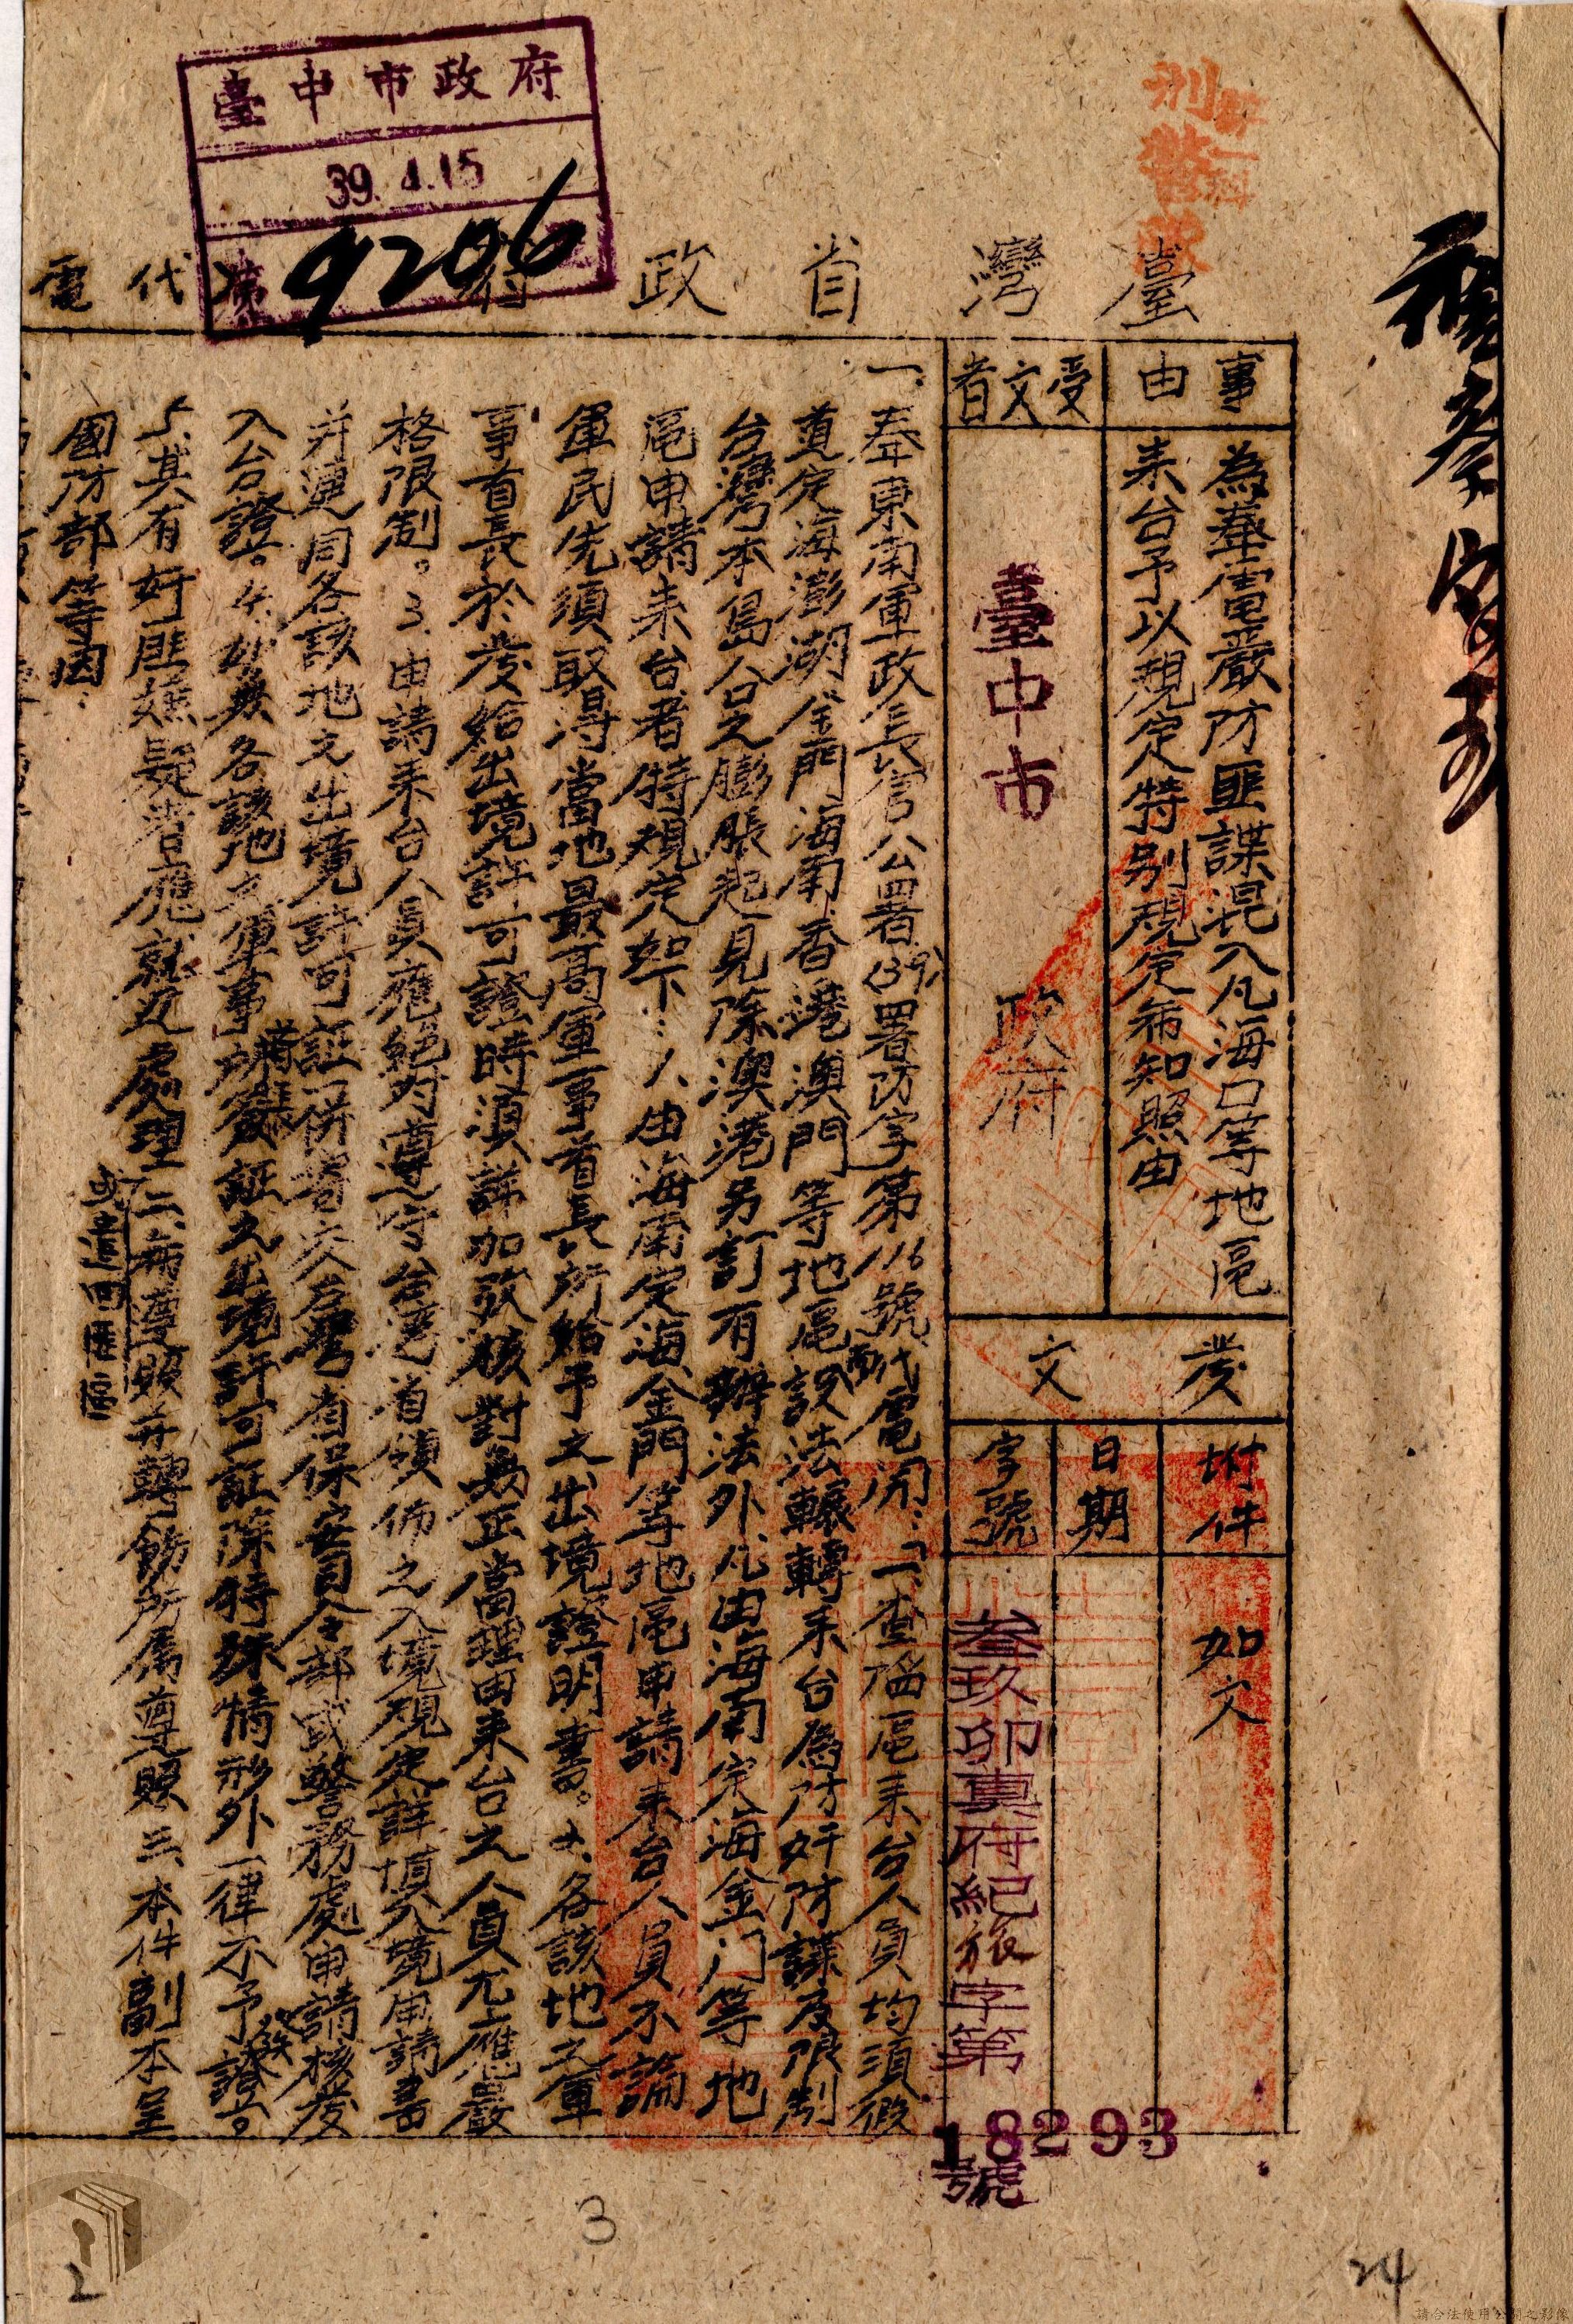 臺中市政府
39.4.15
第9206
刑警
第一科
臺灣省政府代電
事由
為奉電嚴防匪諜混入凡海口等地區
来台予以規定特别規定希知照由
受文者
臺中市政府
發文
附件
如文
日期
字號
叁玖卯真府紀旅字第18293號
一、奉東南軍政長官公署(39)署防字第116號代電開:「一、查匪區来台人員均須假
道定海澎湖金門海南香港澳門等地區設法輾轉来台為防奸防諜及限制
台灣本島人口之膨脹起見除澳港另訂有辦法外凡由海南定海金门等地
區申請来台者特規定如下:1、由海南定海金門等地區申請来台人員不論
軍民先須取得當地最高軍事首長所給予之出境證明書。2、各該地之軍
事首長於發給出境許可證時須詳加攷核對無正當理由来台之人員尤應嚴
格限制。3、申請来台人員應絕对遵守台灣省頒佈之入境規定詳填入境申請書
并連同各該地之出境許可証併寄交台灣省保安司令部或警務處申請核發
入台證。4、如無各該地之軍事首長發証之出境許可証除特殊情形外一律不予核發證。
5、其有奸匪嫌疑者應就近處理或遣回匪區二、希遵照并轉飭所属遵照三、本件副本呈
國防部等因:
3
2
24
請合法使用公開之影像